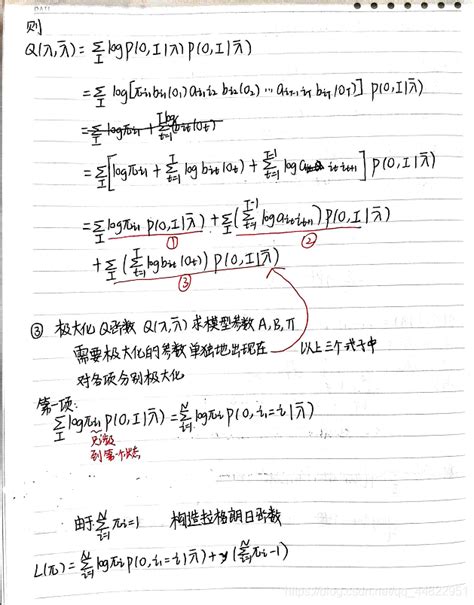 则
Q(λ,λ̄) = Σ_I log P(O,I|λ) P(O,I|λ̄)
= Σ_I log[π_{i1} b_{i1}(o_1) a_{i1 i2} b_{i2}(o_2) … a_{iT-1 iT} b_{iT}(o_T)] P(O,I|λ̄)
= Σ_I [log π_{i1} + Σ_{t=1}^{T} log b_{it}(o_t) + Σ_{t=1}^{T-1} log a_{it it+1}] P(O,I|λ̄)
= Σ_I log π_{i1} P(O,I|λ̄) + Σ_I (Σ_{t=1}^{T-1} log a_{it it+1}) P(O,I|λ̄)
① ②
+ Σ_I (Σ_{t=1}^{T} log b_{it}(o_t)) P(O,I|λ̄)
③
③ 极大化 Q函数 Q(λ,λ̄) 求模型参数 A,B,π
需要极大化的参数单独地出现在 以上三个式子中
对各项分别极大化
第一项:
Σ_I log π_{i1} P(O,I|λ̄) = Σ_{i=1}^{N} log π_i P(O,i_1=i|λ̄)
到第一个状态
由于 Σ_{i=1}^{N} π_i = 1 构造拉格朗日函数
L(π) = Σ_{i=1}^{N} log π_i P(O,i_1=i|λ̄) + γ(Σ_{i=1}^{N} π_i - 1)